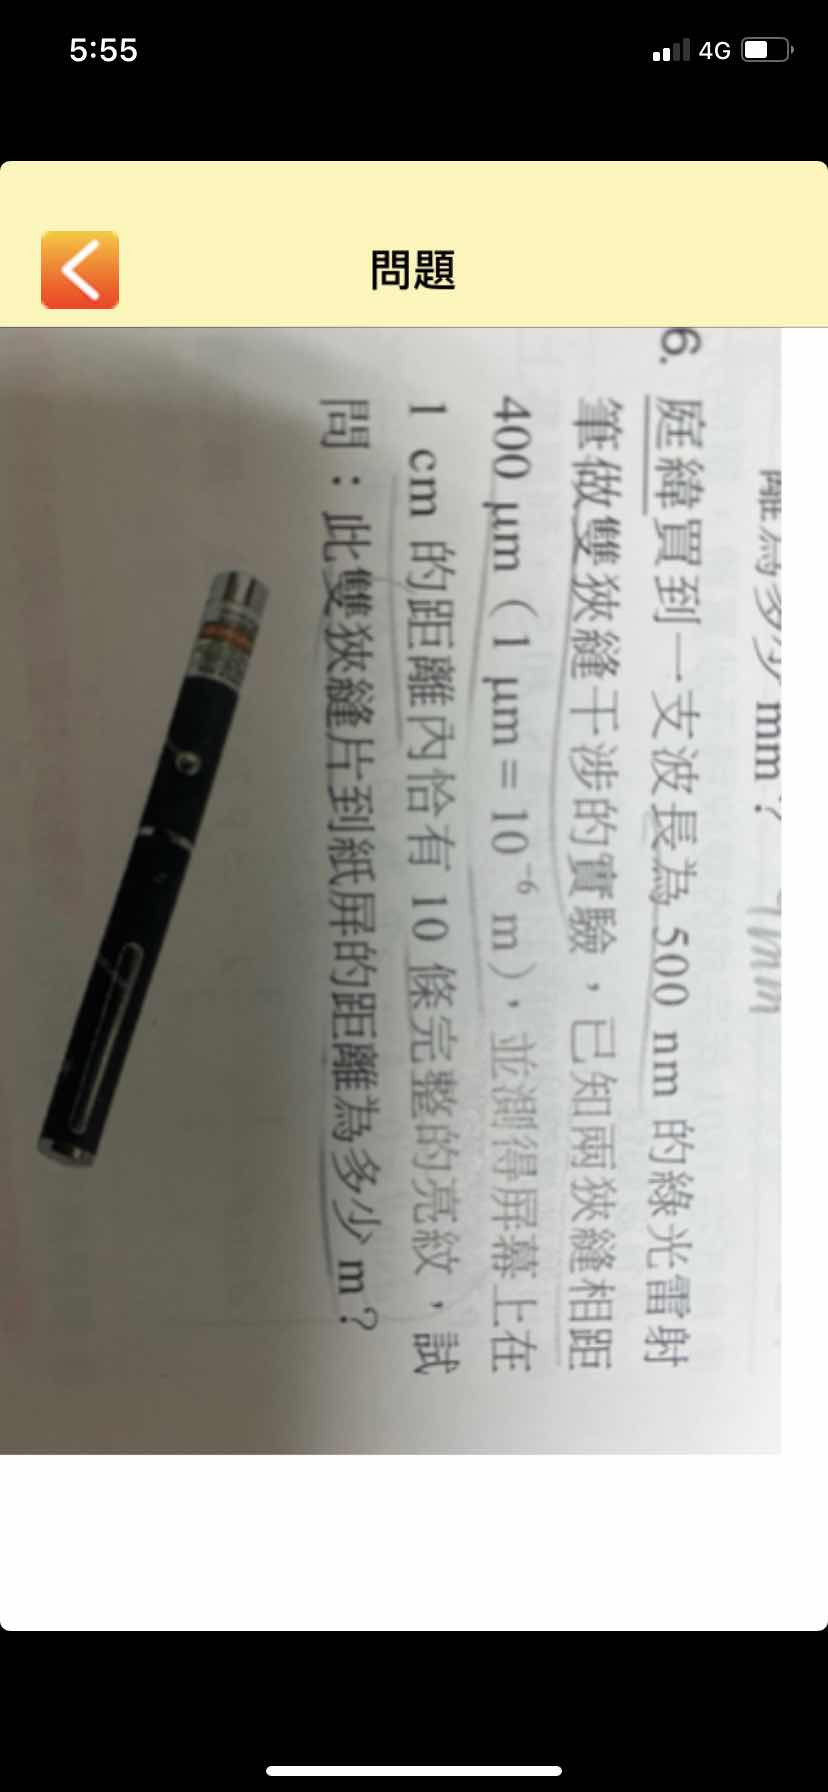 5:55
4G
問題
離為多少 mm？
6. 庭緯買到一支波長為 500 nm 的綠光雷射
筆做雙狹縫干涉的實驗，已知兩狹縫相距
400 μm（1 μm = 10⁻⁶ m），並測得屏幕上在
1 cm 的距離內恰有 10 條完整的亮紋，試
問：此雙狹縫片到紙屏的距離為多少 m？